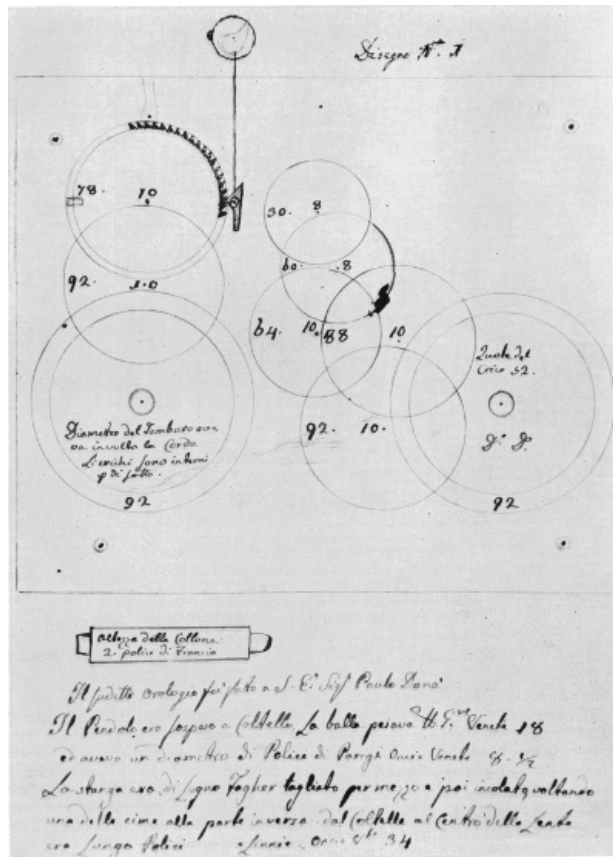 Disegno N.º 1
78. 10
30. 8
92. 10
60. 8
64. 10 88 10
Ruote del
Crico 52.
Diametro del Tamburo ove
va involta la Corda
Li crichi sono interni
p di sotto.
92. 10.
Dº Dº
92
92
Altezza della Collona
2. police di Francia
Il suditto Orologio fu fato a S. E. Sigr Paulo Donà
Il Pendolo era sospeso a Coltello, La balla pesava Venete 18
ed aveva un diametro di Police di Parigi Oncie Venete 8 ½
La stanga era di Ligno tagliato per mezzo e poi incolato voltando
una delle cime alla parte inversa dal Coltello al Centro della Lente
era Lunga Polici e Linnie. Oncie 34